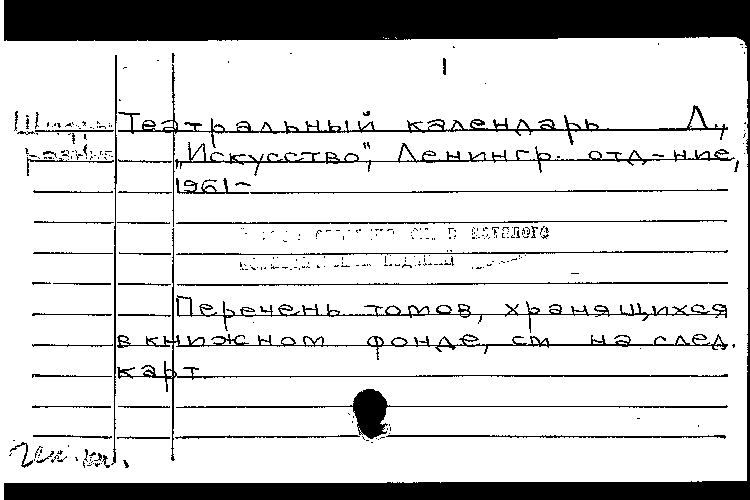 1
Шифры Театральный календарь. Л.,
разные „Искусство", Ленингр. отд-ние,
1961-
см. в каталоге
изданий
Перечень томов, хранящихся
в книжном фонде, см на след.
карт.